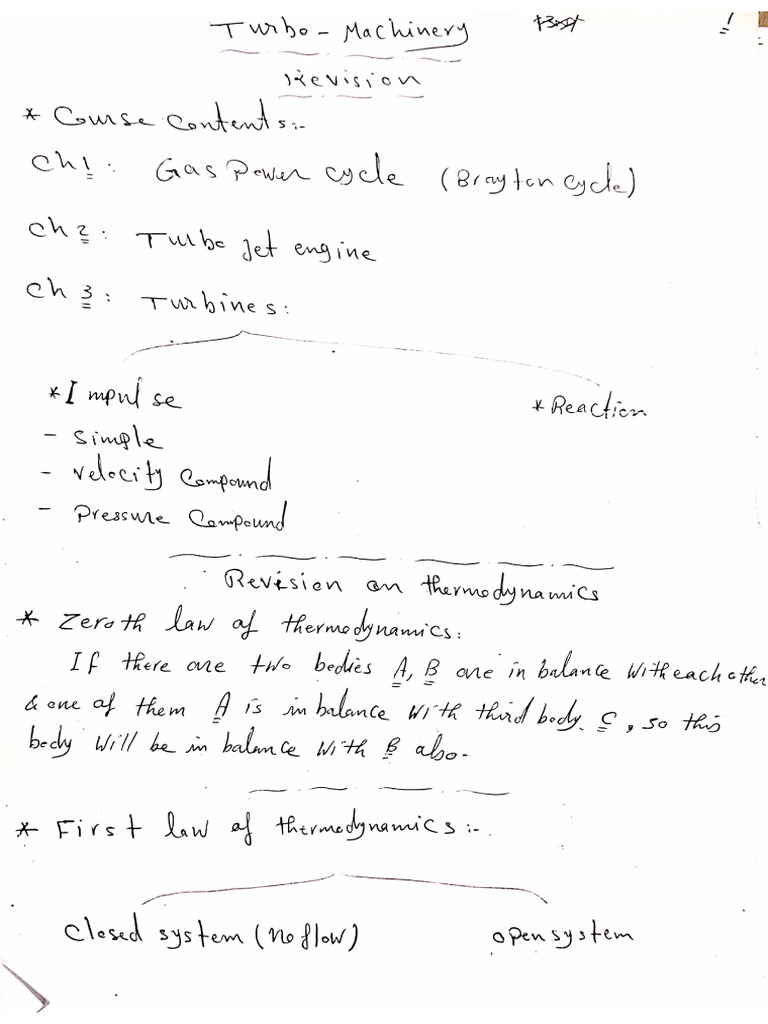 Turbo - Machinery
1
Revision
* Course Contents:-
Ch 1: Gas Power cycle (Brayton Cycle)
Ch 2: Turbo Jet engine
Ch 3: Turbines:
* Impulse
* Reaction
- Simple
- Velocity Compound
- Pressure Compound
Revision on thermodynamics
* Zeroth law of thermodynamics:
If there are two bodies A, B are in balance with each other
& one of them A is in balance with third body C, so this
body will be in balance with B also.
* First law of thermodynamics:-
Closed system (No flow)
open system